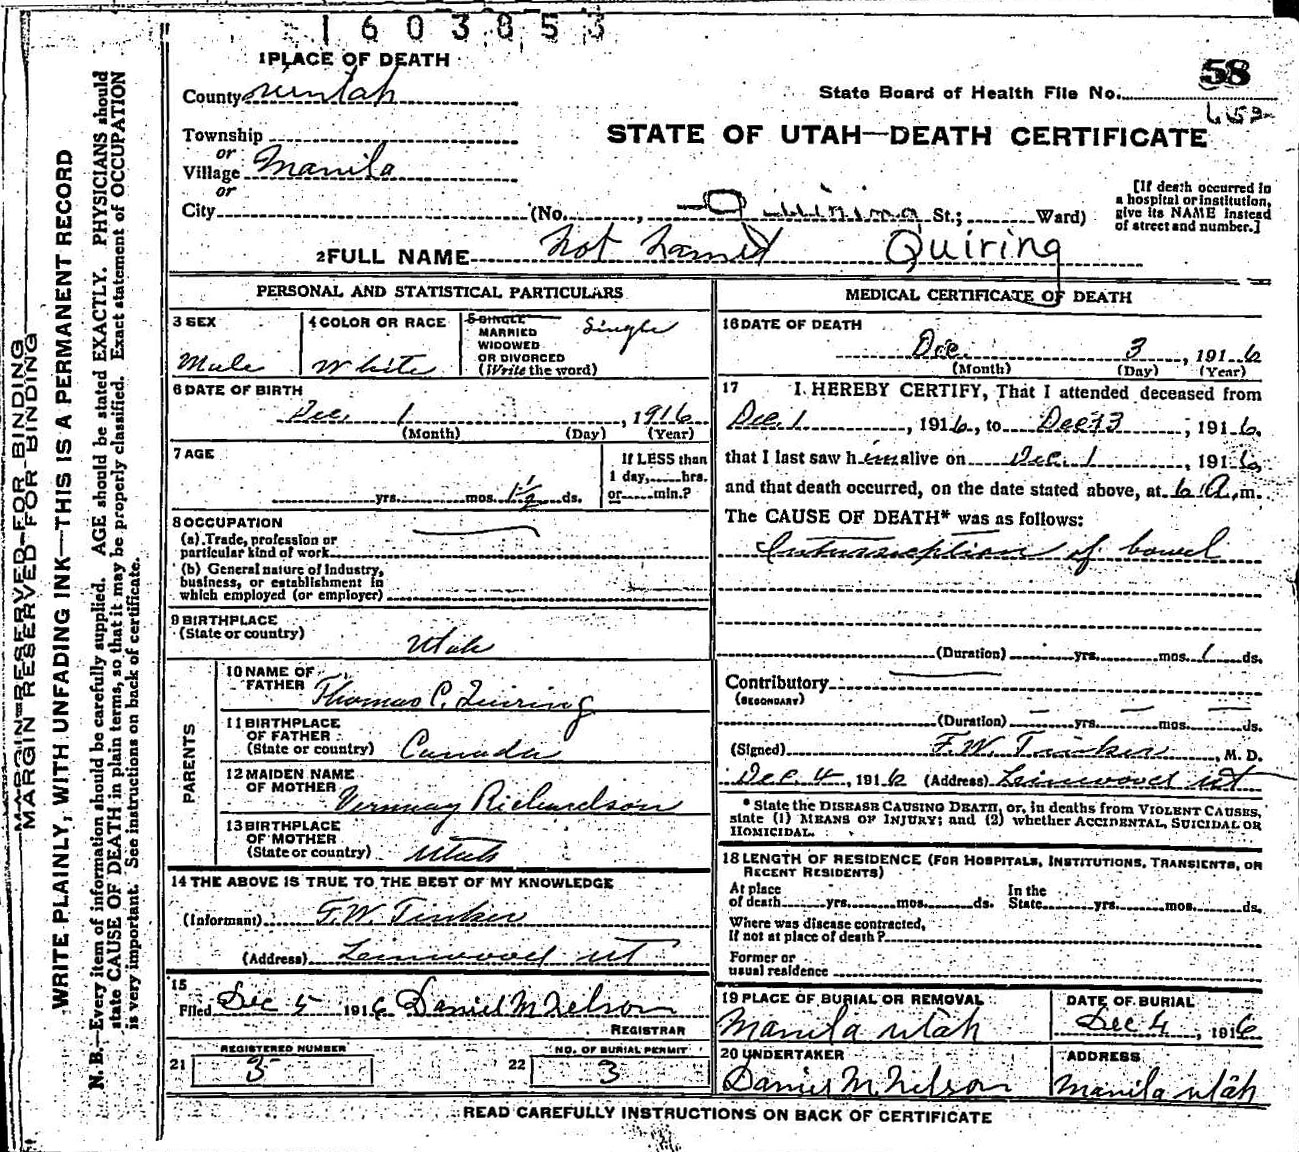 1603853
1 PLACE OF DEATH
58
County Uintah
State Board of Health File No.
652
Township
STATE OF UTAH—DEATH CERTIFICATE
or
Village Manila
or
City (No. , Quiring St.; Ward)
[If death occurred in
a hospital or institution,
give its NAME instead
of street and number.]
2 FULL NAME Not Named Quiring
PERSONAL AND STATISTICAL PARTICULARS
3 SEX
Male
4 COLOR OR RACE
White
5 SINGLE
MARRIED
WIDOWED
OR DIVORCED
(Write the word)
Single
6 DATE OF BIRTH
Dec. 1, 1916
(Month) (Day) (Year)
7 AGE
yrs. mos. 1½ ds.
If LESS than
1 day, hrs.
or min.?
8 OCCUPATION
(a) Trade, profession or
particular kind of work
(b) General nature of Industry,
business, or establishment in
which employed (or employer)
9 BIRTHPLACE
(State or country)
Utah
PARENTS
10 NAME OF
FATHER
Thomas C. Quiring
11 BIRTHPLACE
OF FATHER
(State or country) Canada
12 MAIDEN NAME
OF MOTHER
Richardson
13 BIRTHPLACE
OF MOTHER
(State or country) Utah
14 THE ABOVE IS TRUE TO THE BEST OF MY KNOWLEDGE
(Informant) F.W. Tinker
(Address) Linwood Ut
15
Filed Dec 5 1916 Daniel M Nelson
REGISTRAR
REGISTERED NUMBER
21 3
NO. OF BURIAL PERMIT
22 3
MEDICAL CERTIFICATE OF DEATH
16 DATE OF DEATH
Dec. 3, 1916
(Month) (Day) (Year)
17 I HEREBY CERTIFY, That I attended deceased from
Dec. 1, 1916, to Dec 3, 1916,
that I last saw him alive on Dec. 1, 1916,
and that death occurred, on the date stated above, at 6 A.m.
The CAUSE OF DEATH* was as follows:
Intussuseption of bowel
(Duration) yrs. mos. 1 ds.
Contributory
(SECONDARY)
(Duration) yrs. mos. ds.
(Signed) F.W. Tinker, M. D.
Dec 4, 1916 (Address) Linwood Ut
* State the DISEASE CAUSING DEATH, or, in deaths from VIOLENT CAUSES,
state (1) MEANS OF INJURY; and (2) whether ACCIDENTAL, SUICIDAL OR
HOMICIDAL.
18 LENGTH OF RESIDENCE (FOR HOSPITALS, INSTITUTIONS, TRANSIENTS, OR
RECENT RESIDENTS)
At place
of death yrs. mos. ds.
In the
State yrs. mos. ds.
Where was disease contracted,
If not at place of death?
Former or
usual residence
19 PLACE OF BURIAL OR REMOVAL
Manila Utah
DATE OF BURIAL
Dec 4, 1916
20 UNDERTAKER
Daniel M Nelson
ADDRESS
Manila Utah
READ CAREFULLY INSTRUCTIONS ON BACK OF CERTIFICATE
MARGIN RESERVED FOR BINDING
MARGIN RESERVED FOR BINDING
WRITE PLAINLY, WITH UNFADING INK—THIS IS A PERMANENT RECORD
N. B.—Every item of information should be carefully supplied. AGE should be stated EXACTLY. PHYSICIANS should
state CAUSE OF DEATH in plain terms, so that it may be properly classified. Exact statement of OCCUPATION
is very important. See instructions on back of certificate.